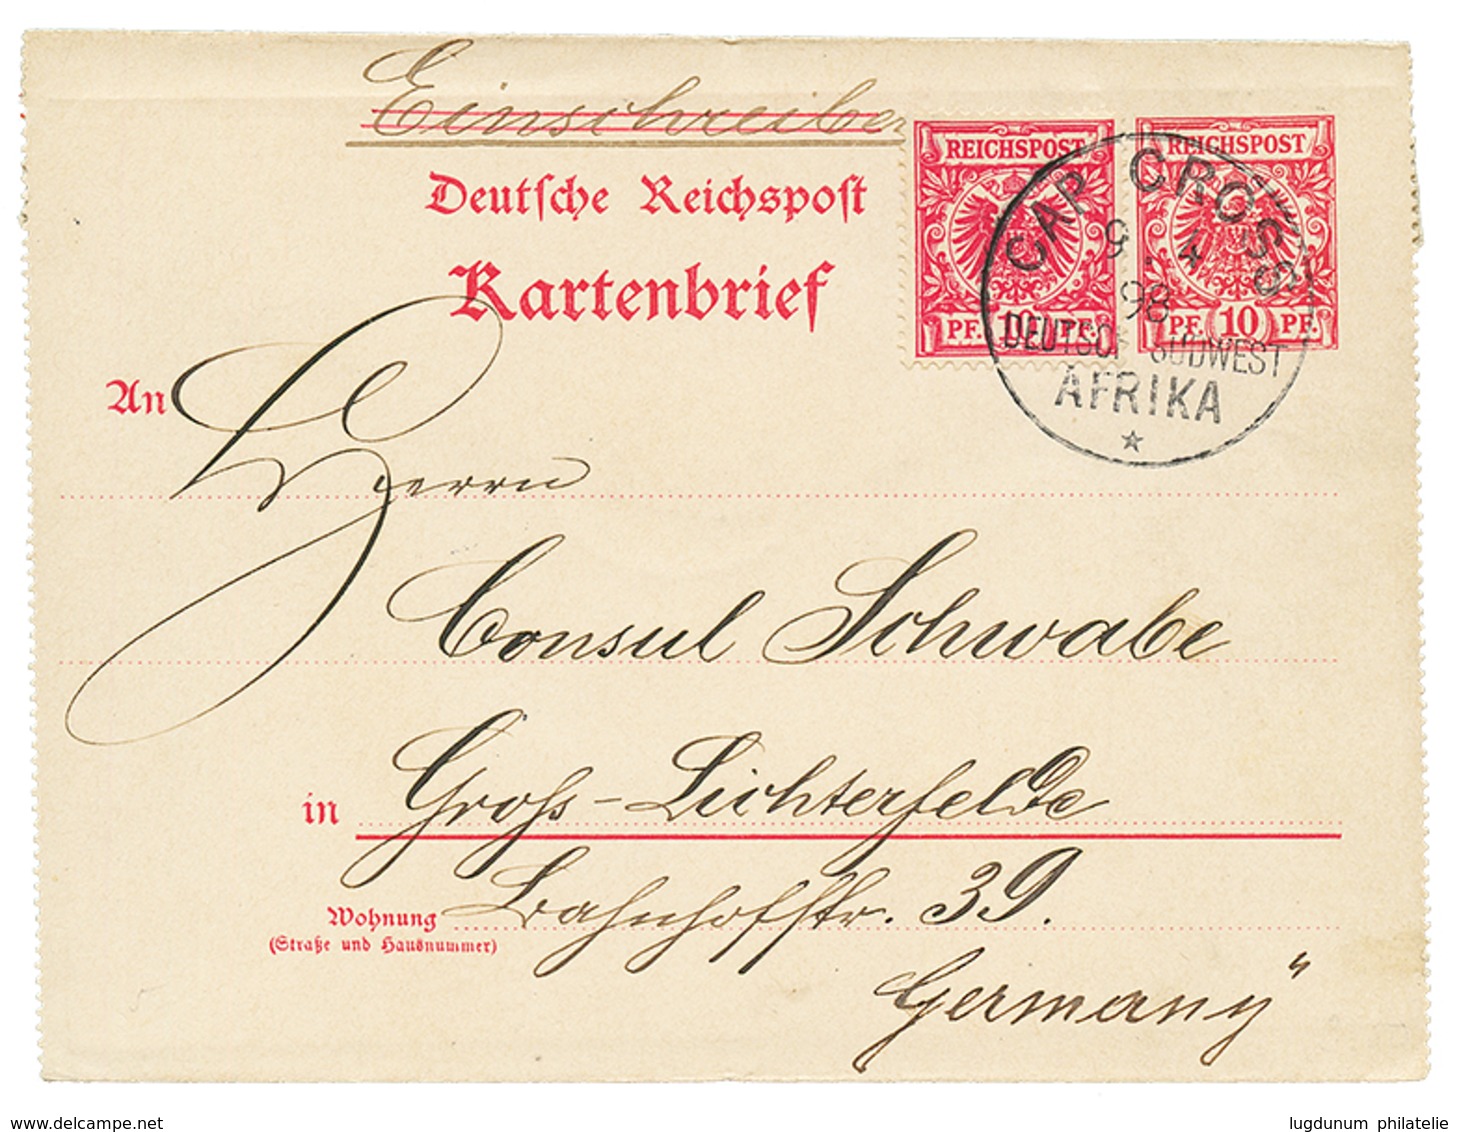 Einschreiben
REICHSPOST
REICHSPOST
Deutſche Reichspoſt
Kartenbrief
PF. 10 PF.
PF. 10 PF.
CAP CROSS
9. 4
98
DEUTSCH SÜDWEST
AFRIKA
An Herrn
Consul Schwabe
in Gross-Lichterfelde
Wohnung Bahnhofstr. 39.
(Straße und Hausnummer)
Germany"
www.delcampe.net
lugdunum philatelie